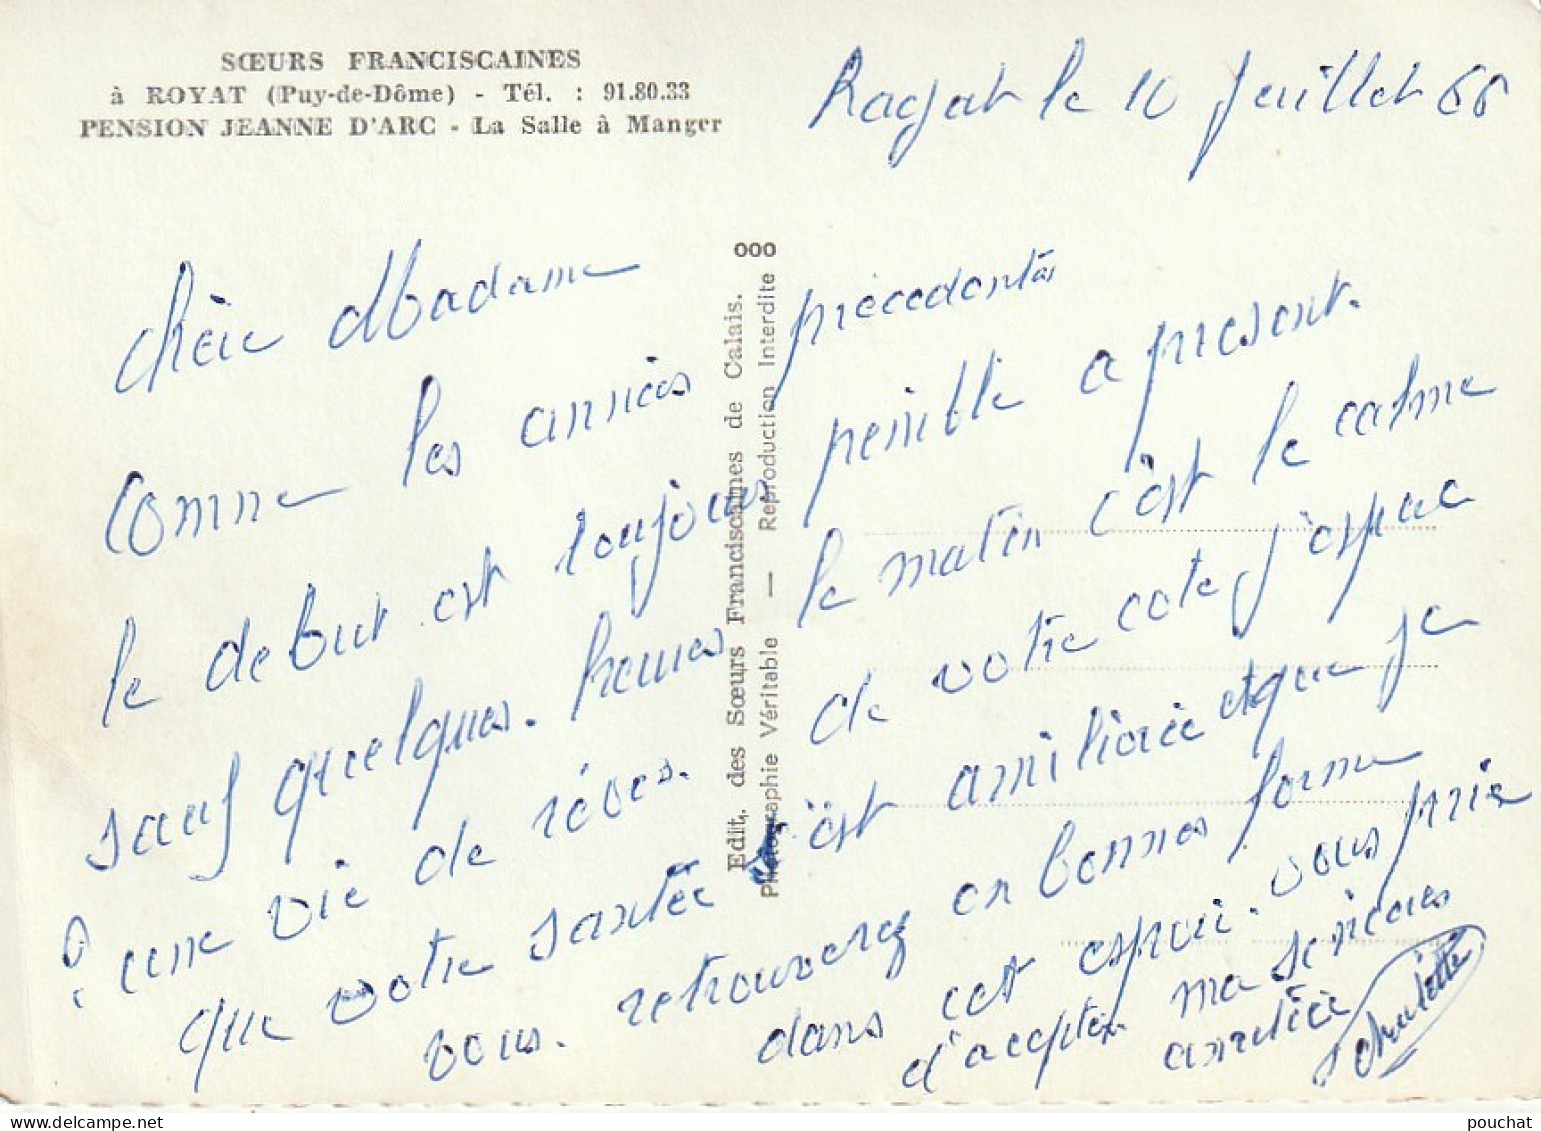 SŒURS FRANCISCAINES
à ROYAT (Puy-de-Dôme) - Tél. : 91.80.33
PENSION JEANNE D'ARC - La Salle à Manger
Royat le 10 Juillet 66
Chère Madame
Comme les années précedentes
le debut est toujours penible a present.
sauf quelques. heures le matin c'est le calme
c'une vie de rêves. de votre cote, j'espere
que votre santée c'est amiliorée et que je
vous. retrouverez en bonnes forme
dans cet espoir. vous prie
d'accepter ma sincères
amitiée
Edit. des Sœurs Franciscaines de Calais. 000
Photographie Véritable — Reproduction Interdite
pouchat